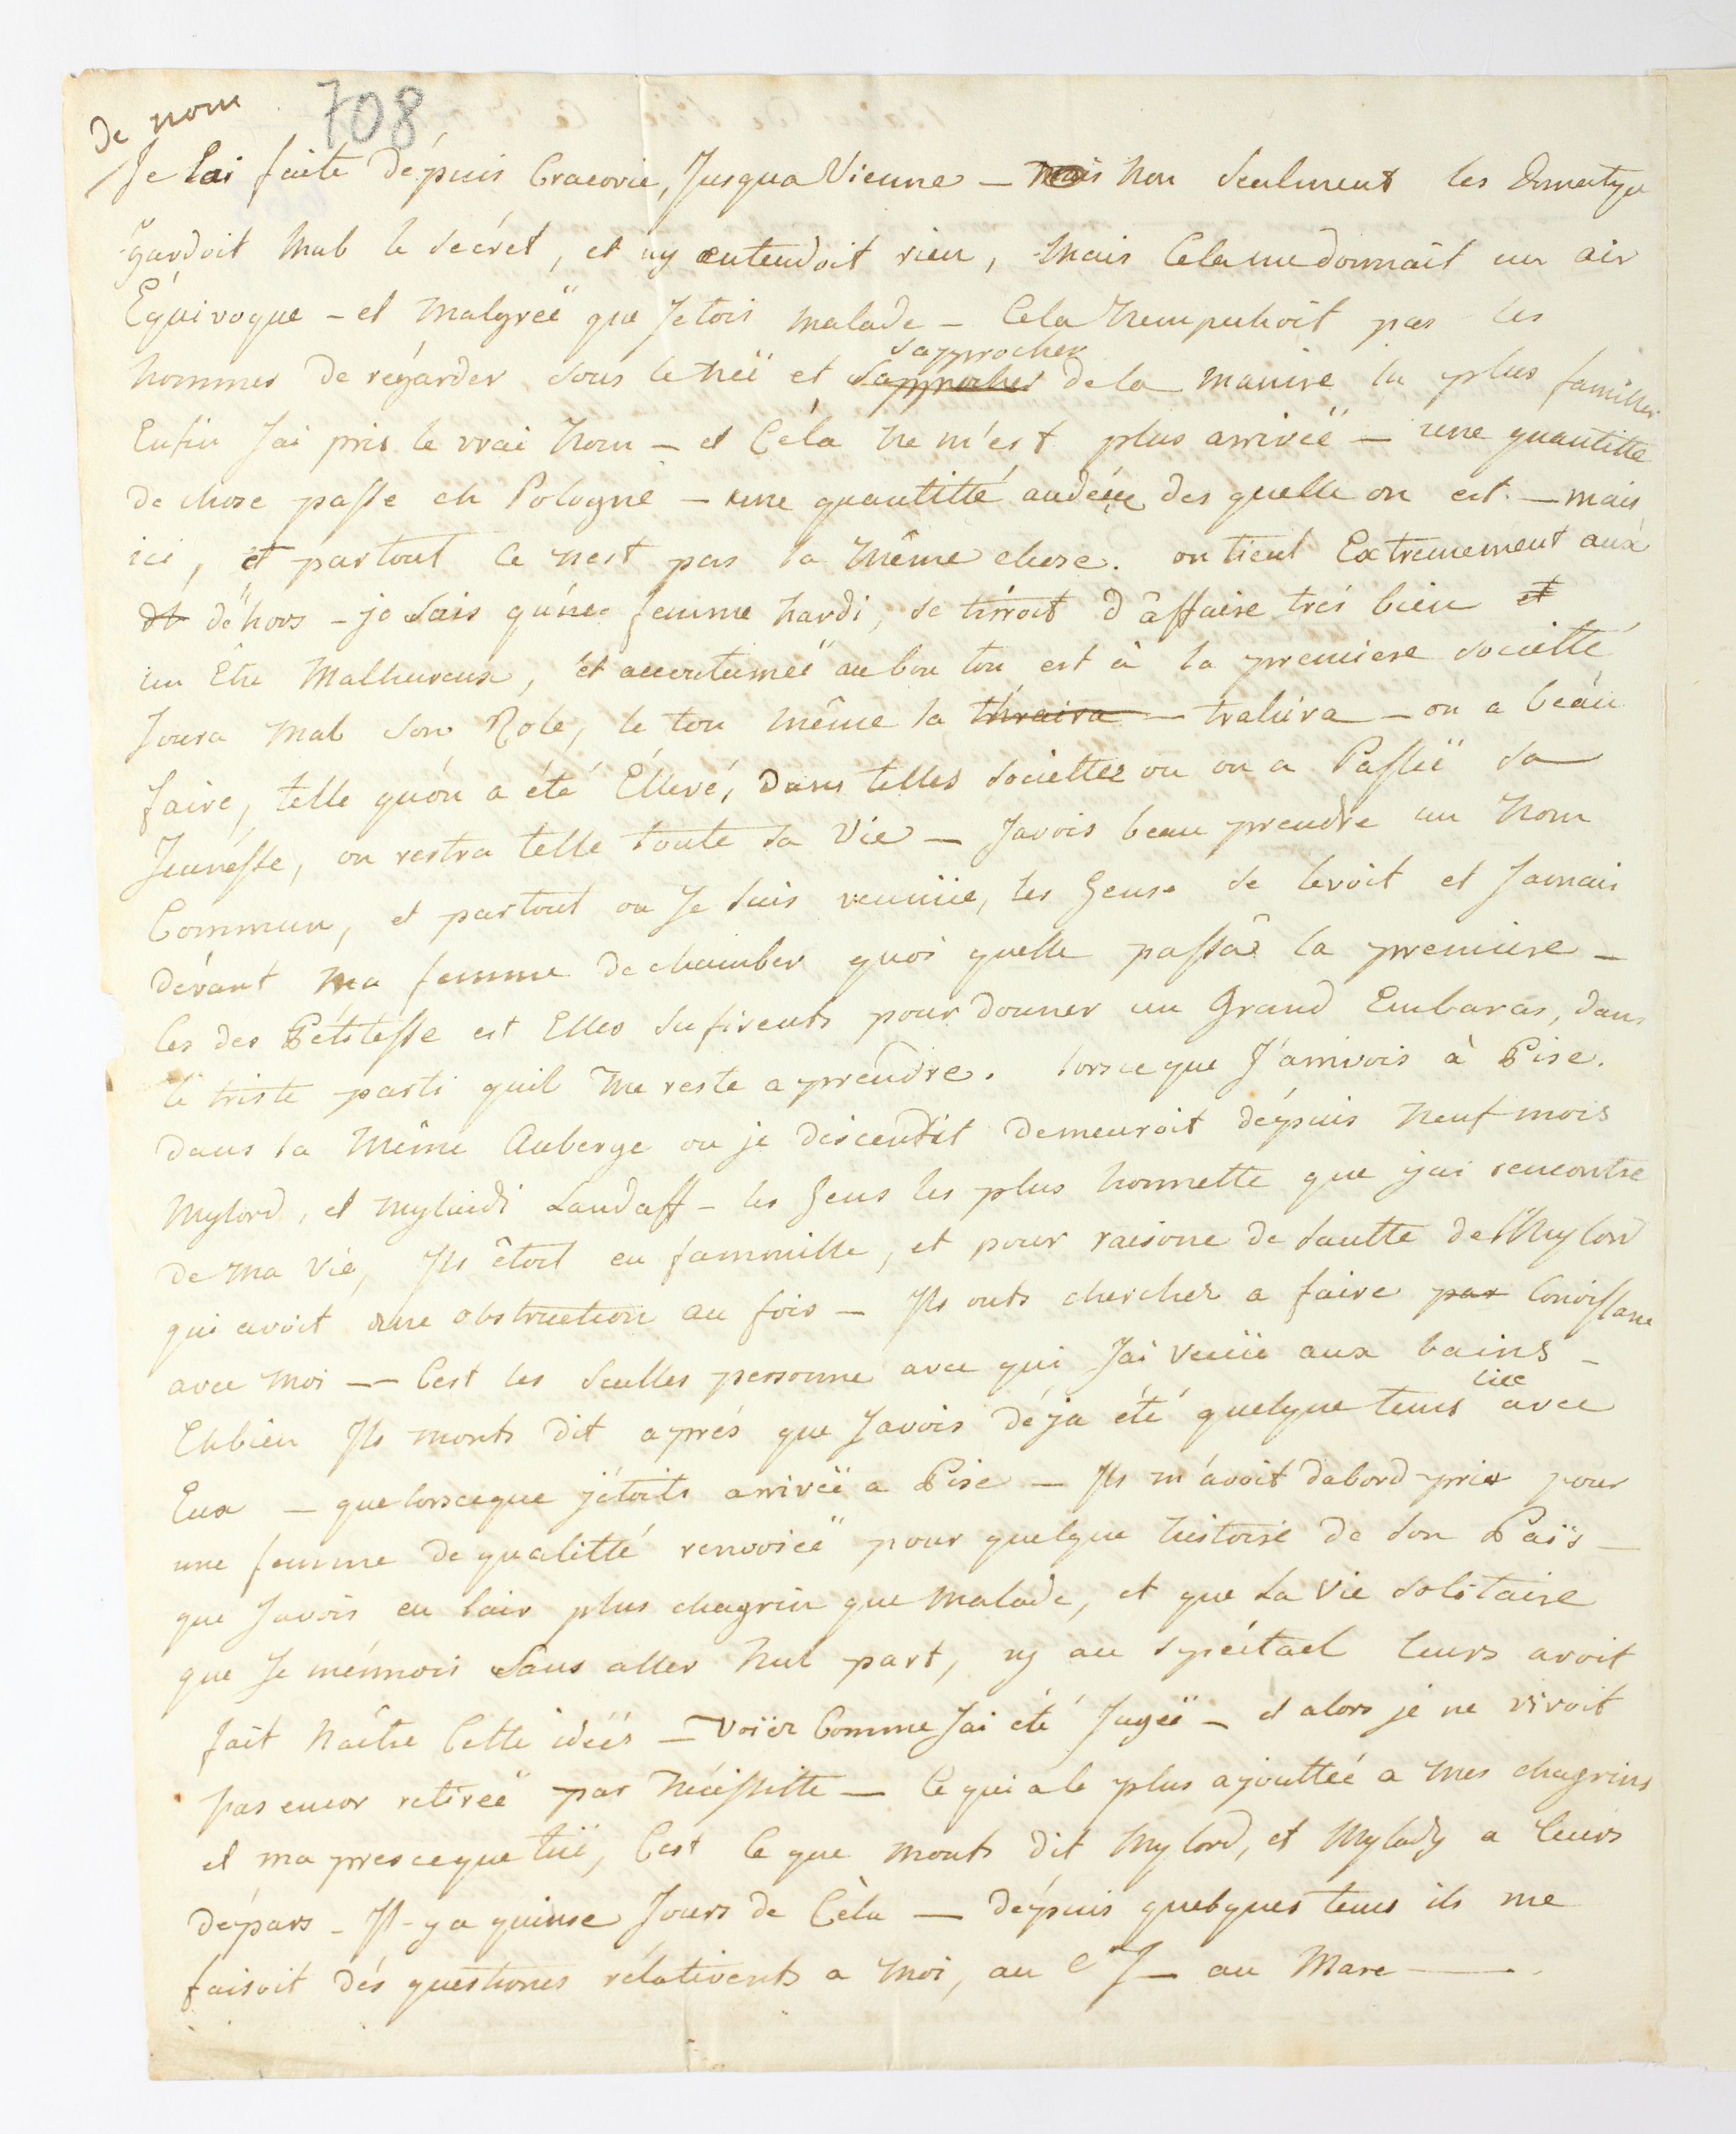 de nom
708
Je lai faite dépuis Cracovie, Jusqua Vienne — mais non seulment les domestyque
gardoit mal le sécret, et ny entendoit rien, mais Cela me donnait un air
Équivoque - et malgréë que Jetois malade - Cela nempechoit pas les
sapprocher
hommes de régarder sous le néë et sapprocher de la manire la plus familier
Enfin Jai pris le vrai nom - et Céla ne m'est plus arrivéë - une quantitte
de chose passe en Pologne - une quantitté audéçu des quelle on est - mais
ici, et partout ce nest pas la même chose. on tient Extremement aux
dt déhors - je sais qu'une femme hardi, se tirroit d'affaire trés bien et
un Être Malhureux, et accoutuméë au bon ton est à la premiere sociétté
Joura mal son Role, le ton même la thraira — trahira - on a beau
faire, telle qu'on a été Éllevé, dans telles sociéttes ou on a Passéë sa
Jeunésse, on restra telle toute sa Vie - Javois beau prendre un Nom
Commun, et partout ou Je suis venuüe, les Gens se levoit et Jamais
dévant ma femme de chamber quoi quelle passa la premiere -
Ces des Pétitesse est Elles sufirents pour donner un Grand Embaras, dans
le triste parti quil me reste a prendre. lorsceque J'arrivois à Pise.
dans la Même Auberge ou je descendit demeuroit dépuis neuf mois
Mylord, et myladi Landaff - les Gens les plus honnette que jai rencontre
de ma vie, Ils étoit en fammille, et pour raisone de santte de Mylord
qui avoit une obstruction au foie - Ils onts cherchez a faire par Conoissance
avec moi -- Cest les seulles personne avec qui Jai vecüe aux bains -
liée
Ehbien Ils monts dit aprés que Javois déja été quelque tems avec
Eux - que lorsceque jétoits arrivéë a Pise - Ils m'avoit dabord prise pour
une femme de qualitté renvoiéë pour quelque histoire de son Païs -
que Javois eu lair plus chagrin que malade, et que la vie solitaire
que Je mennois sans aller nul part, ny au spéctacl leurs avoit
fait naître Cette idéés - Voïez Comme Jai été Jugéë - et alors je ne vivoit
pas encor retiréë par nécéssitte — Ce qui a le plus ajouttéé a mes chagrins
et ma presceque tüé, Cest Ce que monts dit Mylord, et Mylady a leurs
départs - Il-y a quinse Jours de Céla — dépuis quelques tems ils me
faisoit dés questiones rélativents a moi, au — au Mare —